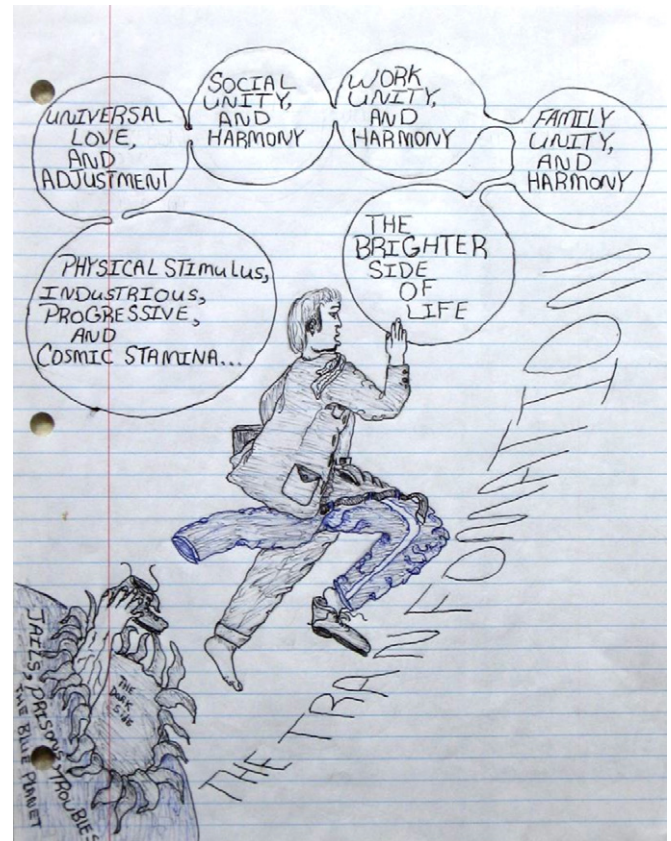 UNIVERSAL
LOVE,
AND
ADJUSTMENT
SOCIAL
UNITY,
AND
HARMONY
WORK
UNITY,
AND
HARMONY
FAMILY
UNITY,
AND
HARMONY
THE
BRIGHTER
SIDE
OF
LIFE
PHYSICAL STIMULUS,
INDUSTRIOUS,
PROGRESSIVE,
AND
COSMIC STAMINA...
THE TRANFOMATION
THE
DARK
SIDE
JAILS, PRISONS, TROUBLES
THE BLUE PLANET